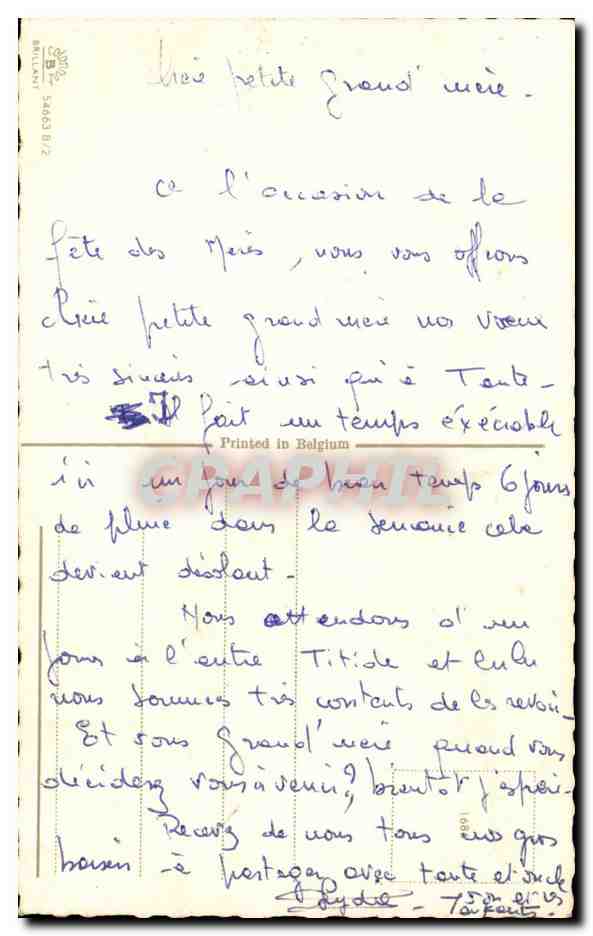 BRILLANT 54663 B/2
Chère petite Grand'mère.
A l'occasion de la
fête des Mères, nous vous offrons
chère petite grand'mère nos vœux
très sincères ainsi qu'à Tante.
Il fait un temps éxécrable
Printed in Belgium
ici un jour de beau temps 6 jours
de pluie dans la semaine cela
devient désolant.
Nous attendons d'un
jour à l'autre Titide et Lulu
nous sommes très contents de les revoir.
Et vous Grand'mère quand vous
déciderez vous à venir? bientôt j'espère.
168
Recevez de nous tous nos gros
baisers à partager avec tante et oncle